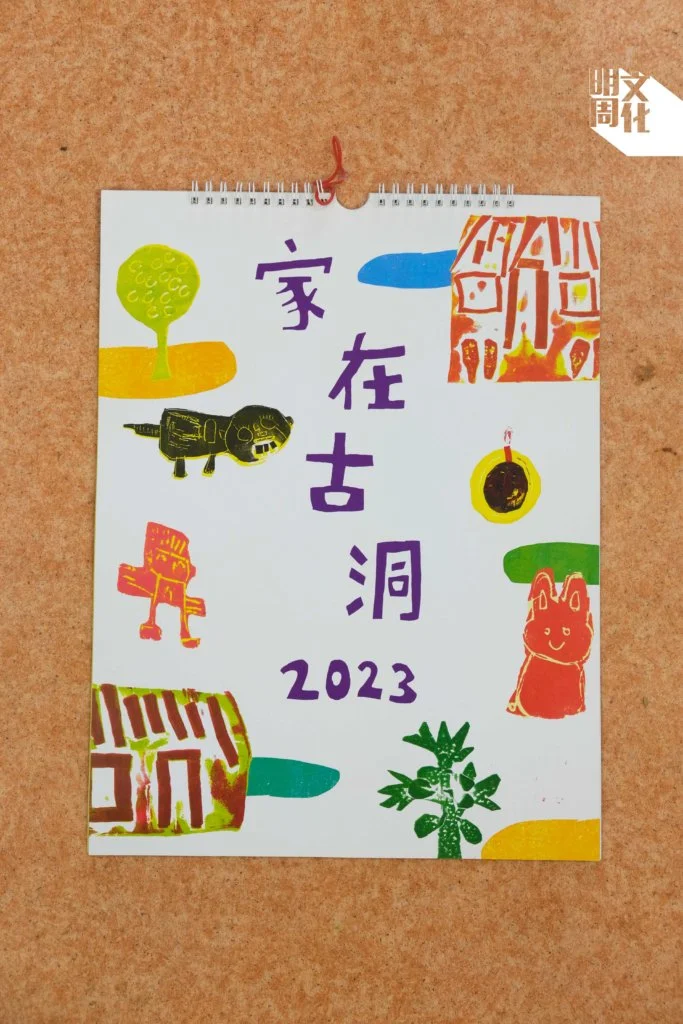 明周
文化
家在古洞
2023